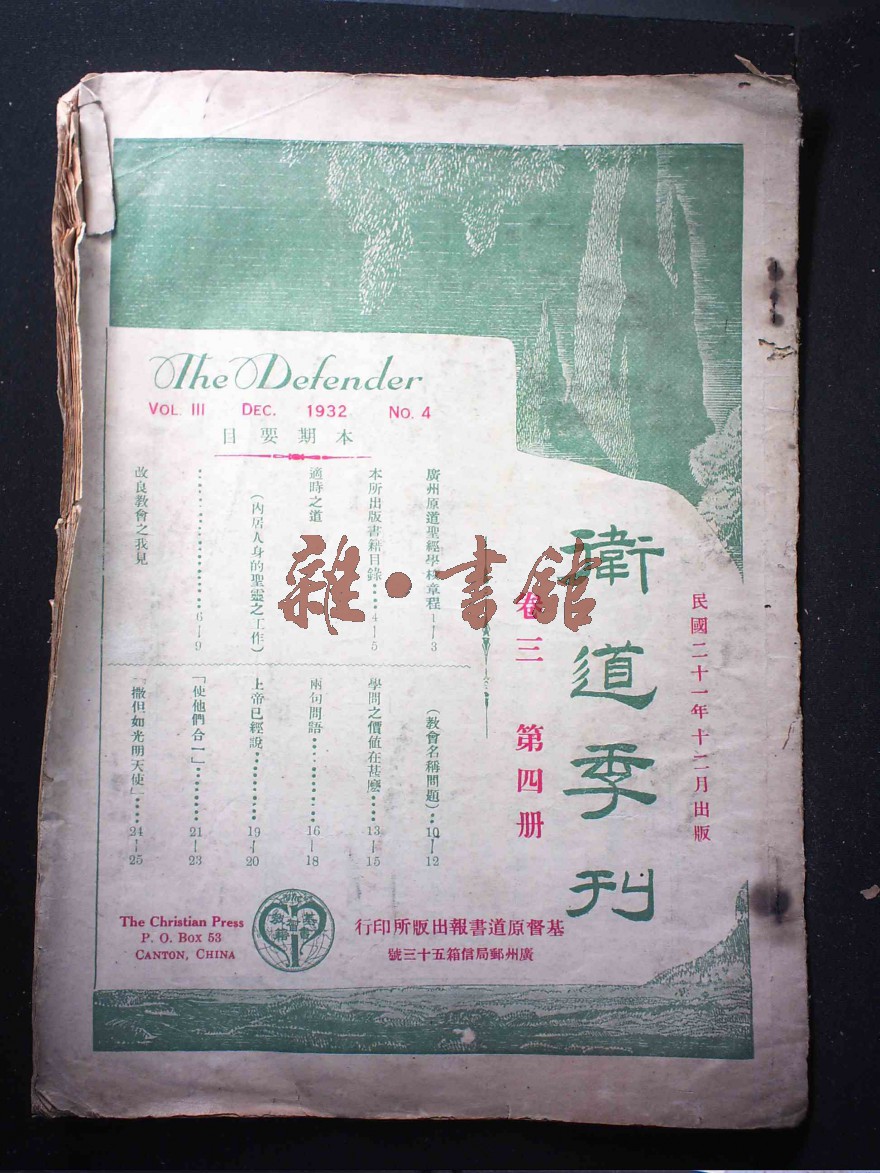 The Defender
VOL. III DEC. 1932 NO. 4
本期要目
廣州原道聖經學校章程 1—3
本所出版書籍目錄……4—5
適時之道
(內居人身的聖靈之工作)
……………………6—9
改良教會之我見
(教會名稱問題)…10—12
學問之價值在甚麽……13—15
兩句問語…………16—18
上帝已經說…………19—20
「使他們合一」………21—23
「撒但如光明天使」……24—25
衛道季刊
卷三 第四册
民國二十一年十二月出版
The Christian Press
P. O. Box 53
CANTON, CHINA
基督原道書報出版所印行
廣州郵局信箱五十三號
雜·書館